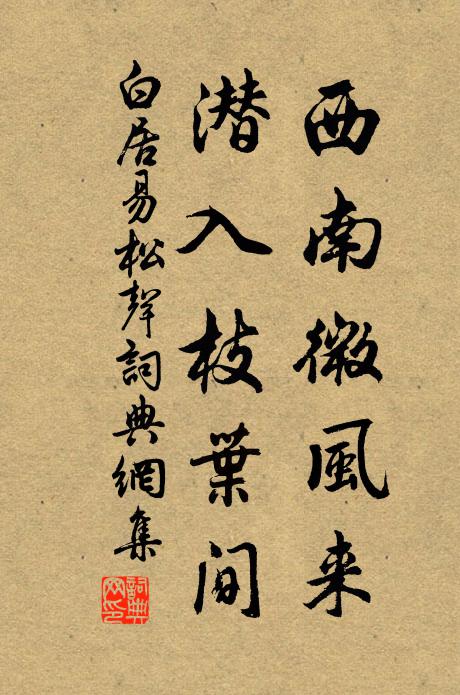 西南微風来
潜入枝葉間
白居易松聲詞典網集
詞典网印